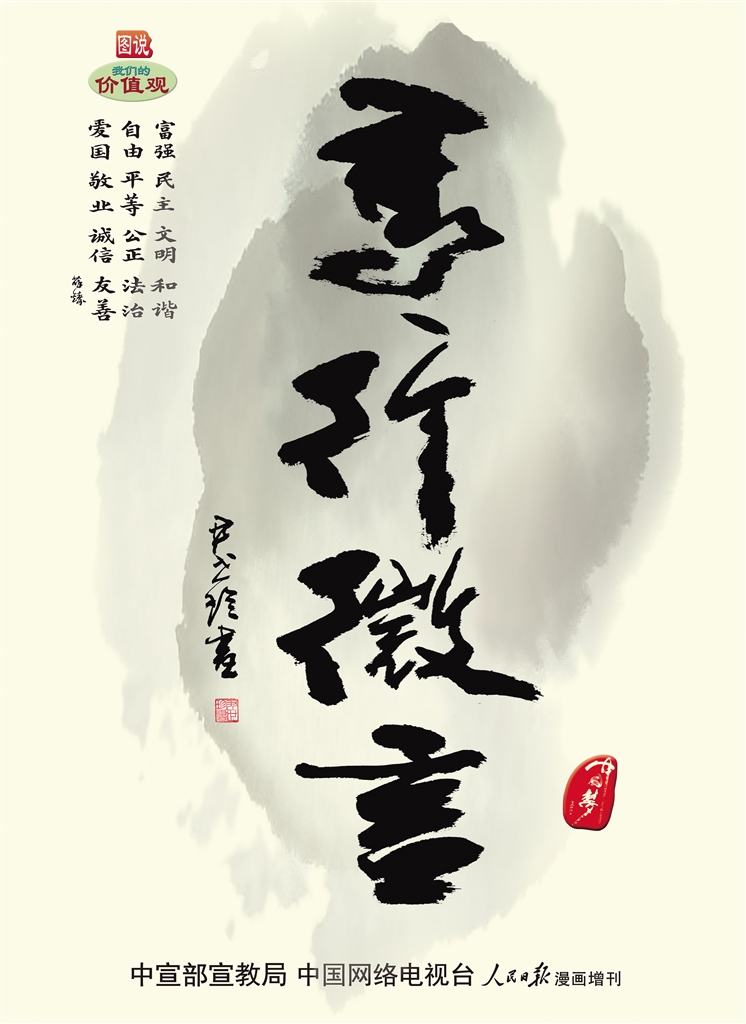 图说
我们的
价值观
富强 民主 文明 和谐
自由 平等 公正 法治
爱国 敬业 诚信 友善
薛臻
行微言
中国梦
中宣部宣教局 中国网络电视台 人民日报 漫画增刊